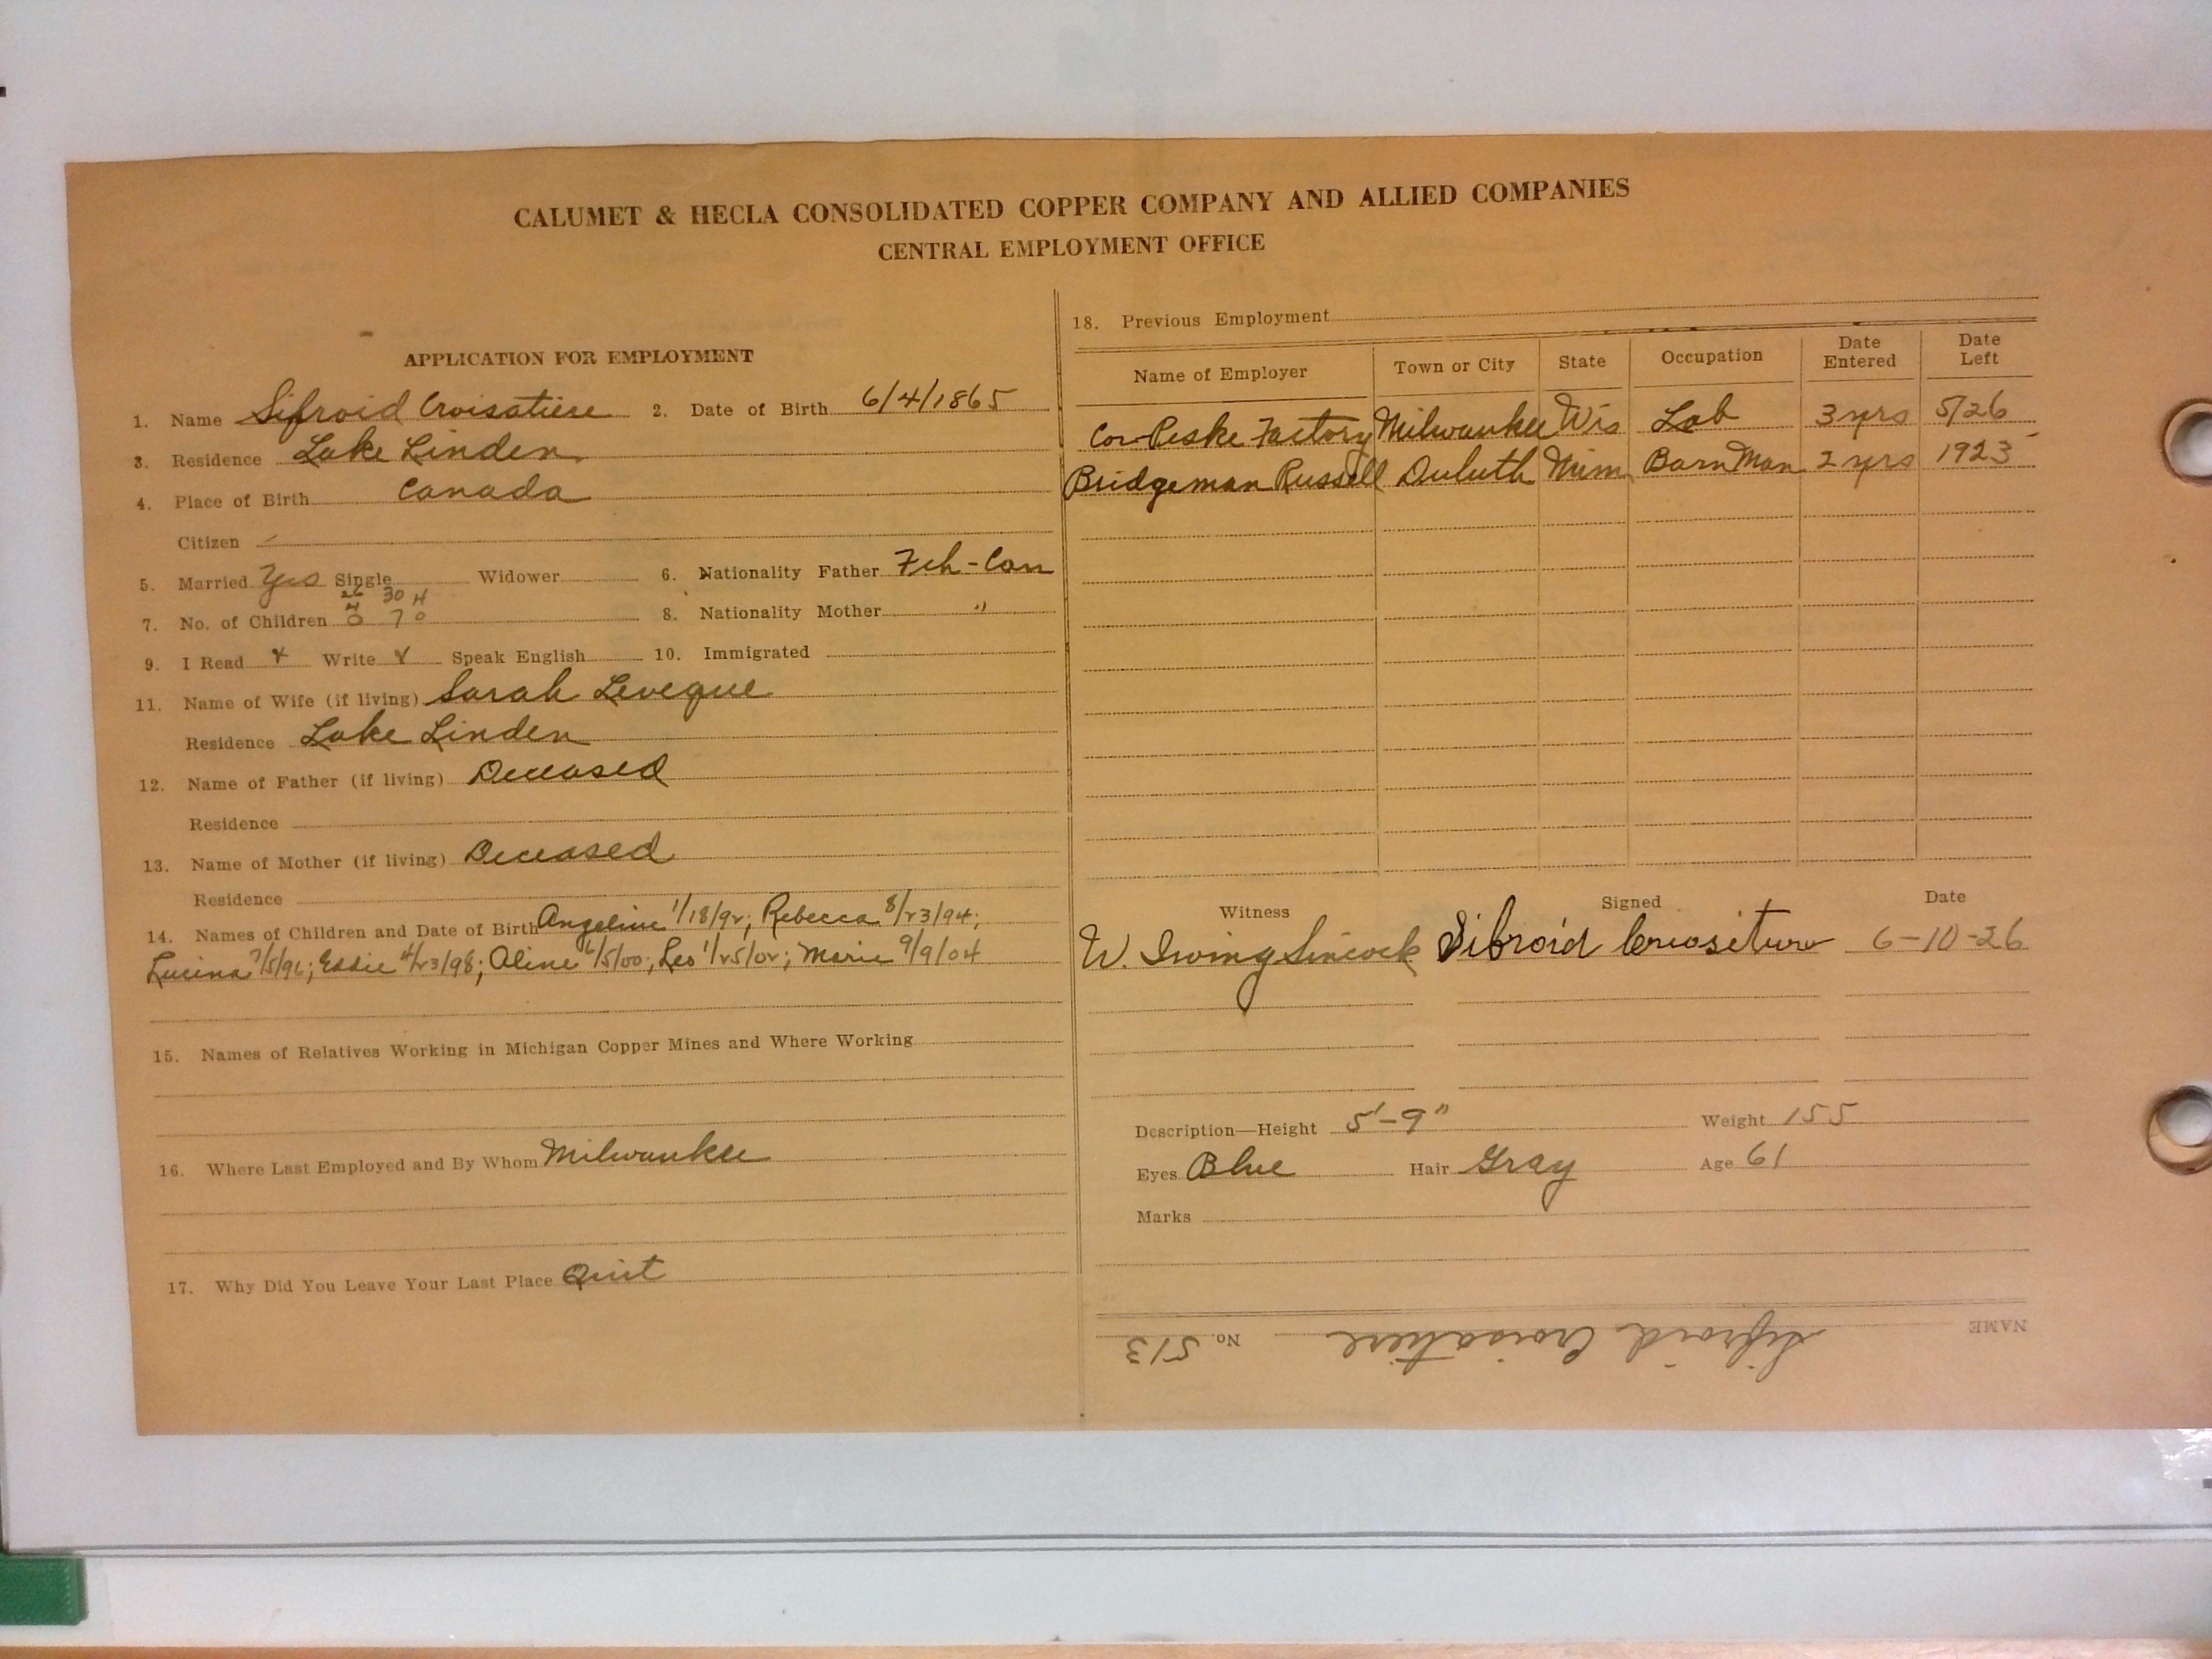 CALUMET & HECLA CONSOLIDATED COPPER COMPANY AND ALLIED COMPANIES
CENTRAL EMPLOYMENT OFFICE
APPLICATION FOR EMPLOYMENT
1. Name Sifroid Croisatiere 2. Date of Birth 6/4/1865
3. Residence Lake Linden
4. Place of Birth Canada
Citizen
5. Married Yes Single Widower 6. Nationality Father Fch-Can
7. No. of Children 8. Nationality Mother "
9. I Read Write Speak English 10. Immigrated
11. Name of Wife (if living) Sarah Leveque
Residence Lake Linden
12. Name of Father (if living) Deceased
Residence
13. Name of Mother (if living) Deceased
Residence
14. Names of Children and Date of Birth Angeline 1/18/92; Rebecca 8/23/94;
Lucina 7/5/96; Eddie 4/23/98; Aline 6/5/00; Leo 1/25/02; Marie 9/9/04
15. Names of Relatives Working in Michigan Copper Mines and Where Working
16. Where Last Employed and By Whom Milwaukee
17. Why Did You Leave Your Last Place Quit
18. Previous Employment
Name of Employer Town or City State Occupation Date Entered Date Left
Factory Milwaukee Wis Lab 3 yrs 5/26
Bridgeman Russell Duluth Minn Barn Man 2 yrs 1923
Witness Signed Date
W. Irving Sincock Sifroid 6-10-26
Description—Height 5'-9" Weight 155
Eyes Blue Hair Gray Age 61
Marks
NAME Sifroid Croisatiere No. 513